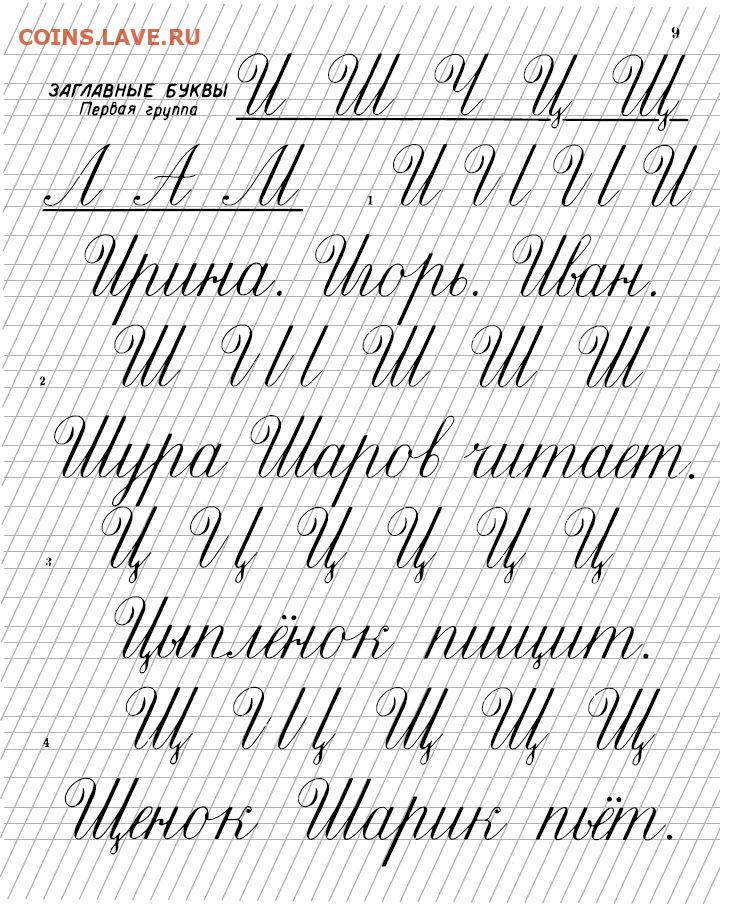 COINS.LAVE.RU
9
ЗАГЛАВНЫЕ БУКВЫ И Ш Ч Ц Щ
Первая группа
Л А М 1 И И И И
Ирина. Игорь. Иван.
2 Ш Ш Ш Ш Ш
Шура Шаров читает.
3 Ц Ц Ц Ц Ц Ц
Цыплёнок пищит.
4 Щ Щ Щ Щ Щ
Щенок Шарик пьёт.